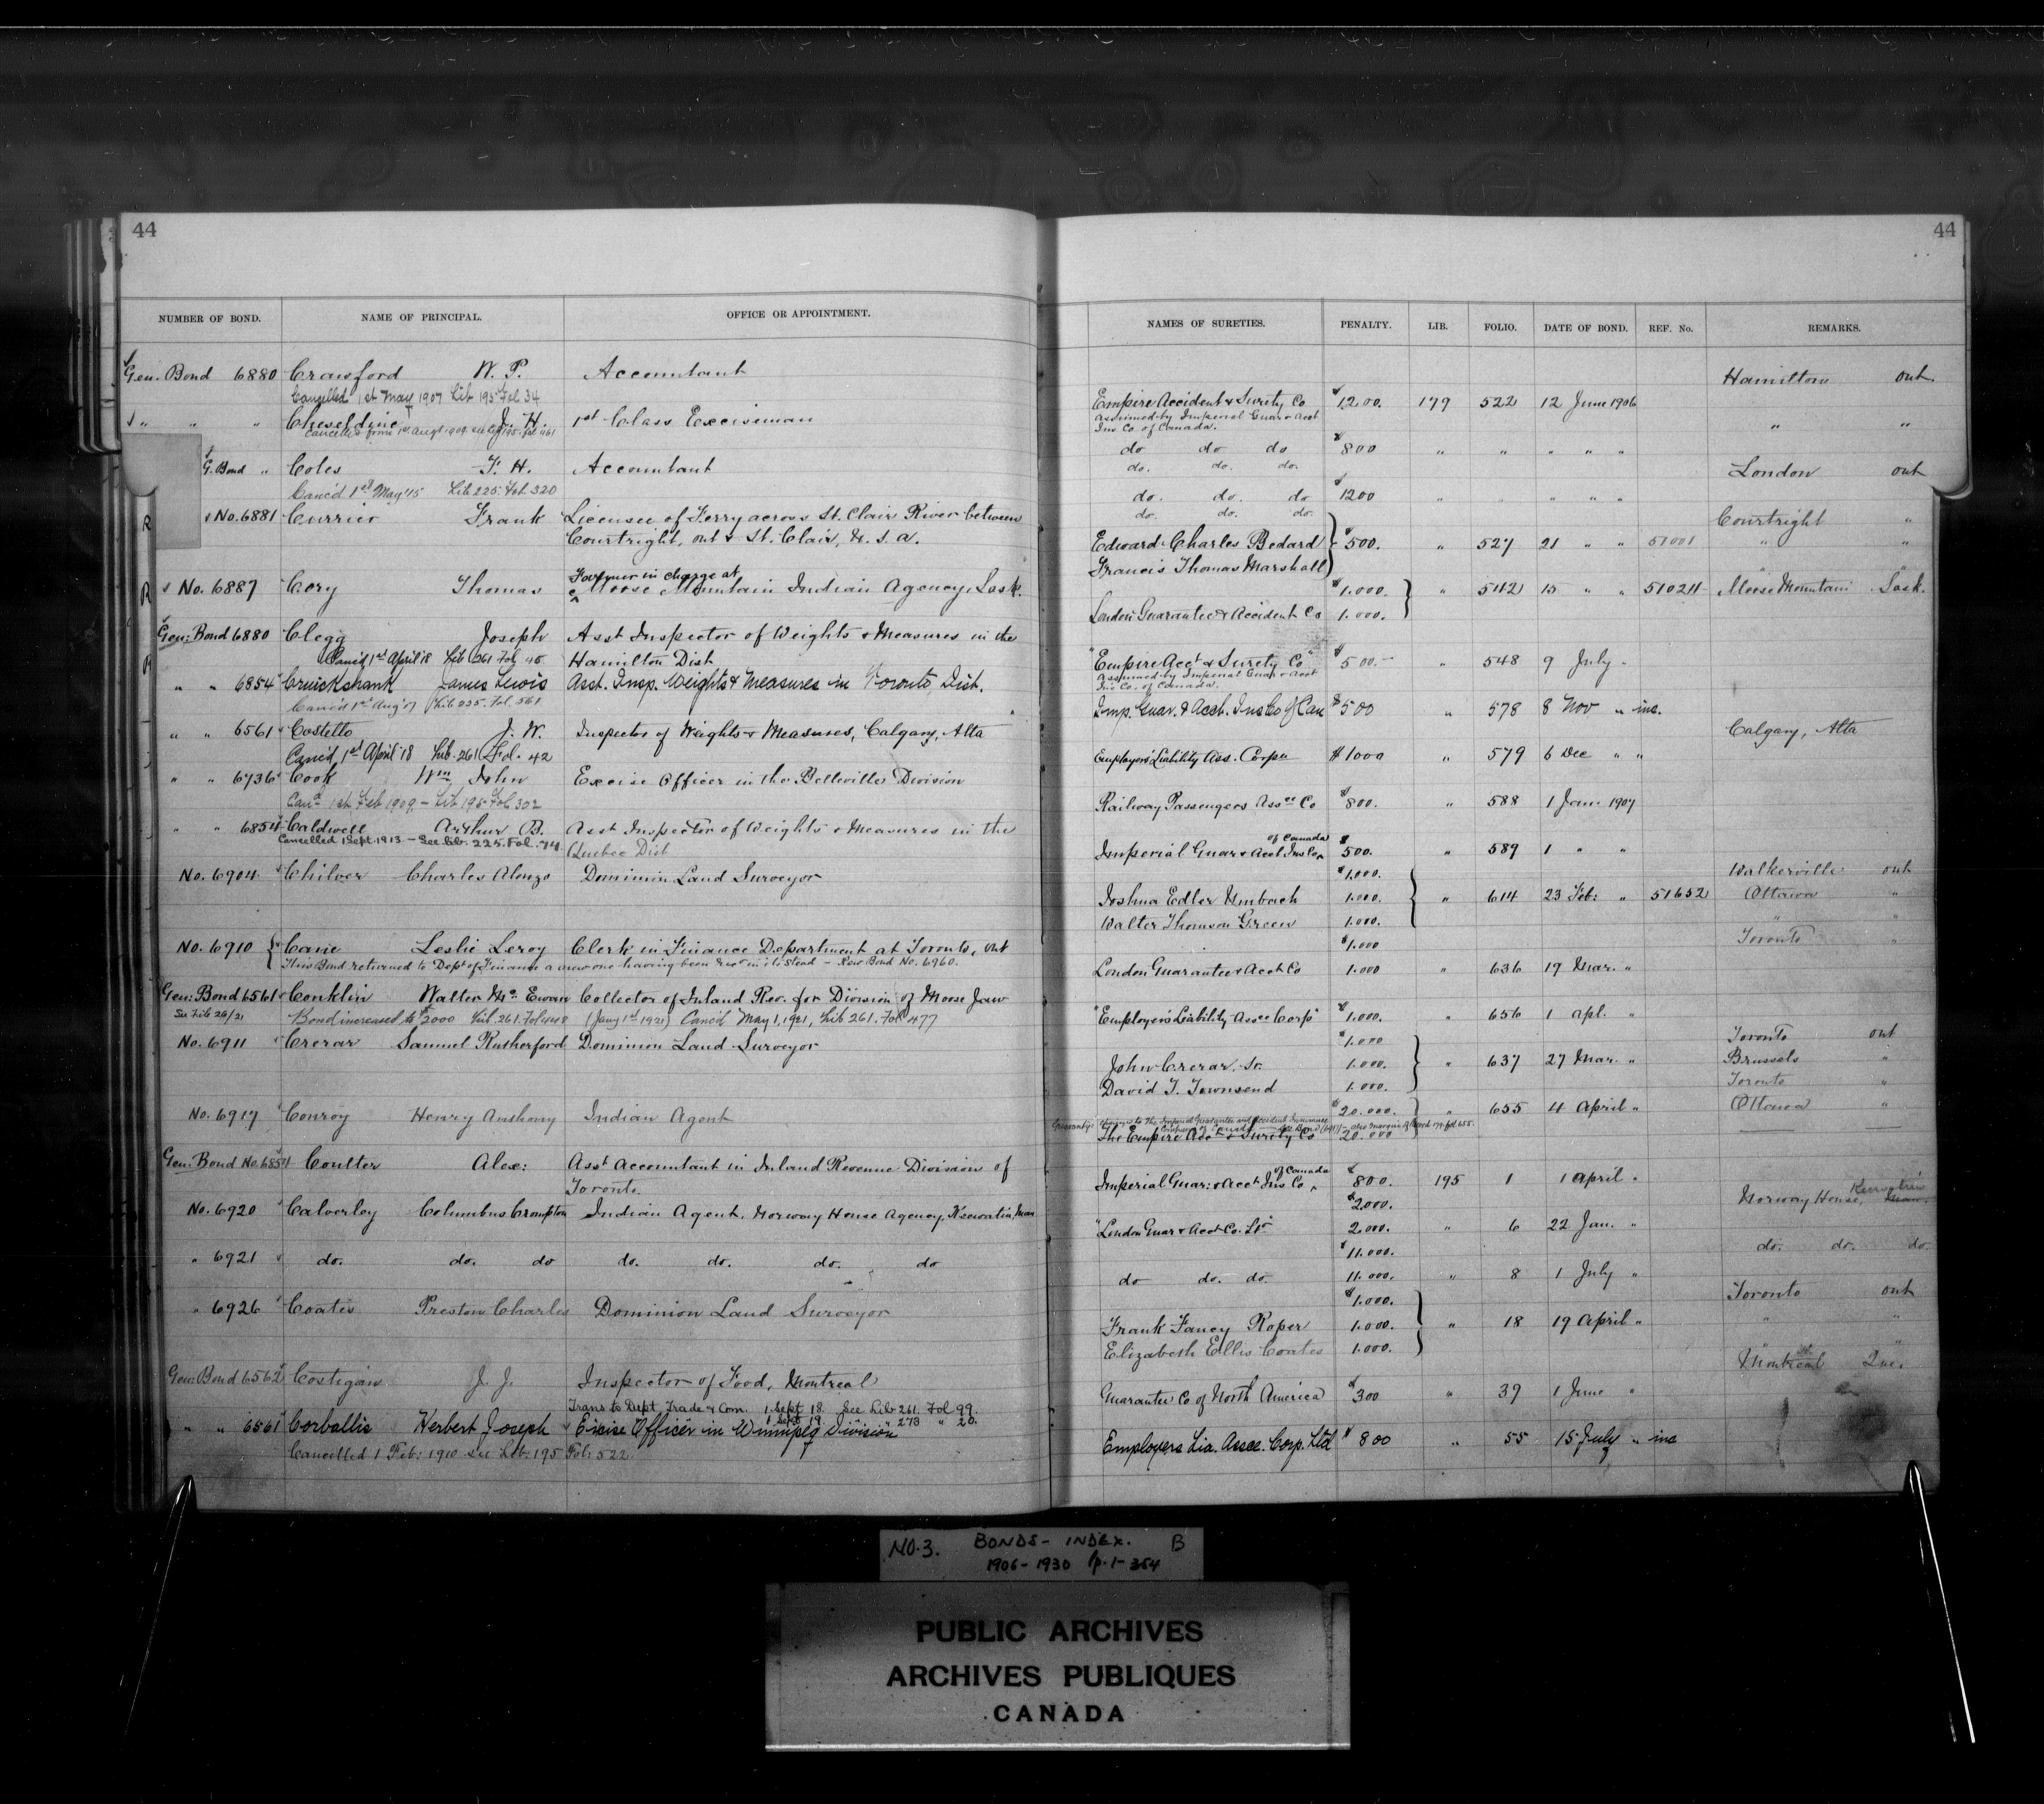 44
NUMBER OF BOND. NAME OF PRINCIPAL. OFFICE OR APPOINTMENT.
Gen. Bond 6880 Crawford W. P. Accountant
Cancelled 1st May 1907 Lib 195 Fol 34
" " " Cheseldine J. H. 1st Class Exciseman
Cancelled from 1st Augt 1909 see Lib 195. fol 461
G. Bond " Coles F. H. Accountant
Canc'd 1st May '15 Lib 225. Fol. 320
R No. 6881 Currier Frank Licensee of Ferry across St. Clair River between
Courtright, Ont & St. Clair, U. S. A.
Farmer in charge at
R No. 6887 Cory Thomas Moose Mountain Indian Agency, Sask.
Gen: Bond 6880 Clegg Joseph Asst Inspector of Weights & Measures in the
R Canc'd 1st April 18 Lib 261 Fol 45 Hamilton Dist
" " 6854 Cruickshank James Lewis Asst. Insp. Weights & Measures in Toronto Dist.
Canc'd 1st Aug' Lib 225. Fol. 561
" " 6561 Costello J. W. Inspector of Weights & Measures, Calgary, Alta
Canc'd 1st April 18 Lib. 261 Fol. 42
" " 6736 Cook Wm John Excise Officer in the Belleville Division
Cand 1st Feb 1909 - Lib 195 Fol 302
" " 6854 Caldwell Arthur B. Asst Inspector of Weights & Measures in the
Cancelled 1 Sept. 1913 - See Lib. 225. Fol. 74. Quebec Dist
No. 6904 Chilver Charles Alonzo Dominion Land Surveyor
No. 6910 Cane Leslie Leroy Clerk in Finance Department at Toronto, Ont
This Bond returned to Dept of Finance a new one having been recd in its stead - New Bond No. 6960.
Gen: Bond 6561 Conklin Walter Mc Ewan Collector of Inland Rev. for Division of Moose Jaw
See Lib 26/21 Bond increased to $2000 Lib. 261. Fol 448 (Jany 1st 1921) Canc'd May 1, 1921, Lib 261. Fol 477
No. 6911 Crerar Samuel Rutherford Dominion Land Surveyor
No. 6917 Conroy Henry Anthony Indian Agent
Gen: Bond No. 6854 Coulter Alex: Asst Accountant in Inland Revenue Division of
Toronto.
No. 6920 Calverley Columbus Crompton Indian Agent. Norway House Agency, Keewatin, Man
" 6921 do. do. do do. do. do. do
" 6926 Coates Preston Charles Dominion Land Surveyor
Gen: Bond 6562 Costigan J. J. Inspector of Food, Montreal
Trans to Dept Trade & Com. 1 Sept 18. See Lib 261. Fol 99.
1 Sept 19. " " 273 " 20.
" " 6561 Corballis Herbert Joseph Excise Officer in Winnipeg Division
Cancelled 1 Feb: 1910 see Lib: 195 Fol: 522
44
NAMES OF SURETIES. PENALTY. LIB. FOLIO. DATE OF BOND. REF. No. REMARKS.
Hamilton Ont.
Empire Accident & Surety Co $1200. 179 522 12 June 1906
Assumed by Imperial Guar & Acct
Ins Co of Canada. " "
do do do $800 " " " " "
do. do. do. London Ont
do. do. do $1200 " " " " "
do. do. do. Courtright "
Edward Charles Bedard $500. " 527 21 " " 51001 " "
Francis Thomas Marshall " "
$1.000. " 542 15 " " 51024 Moose Mountain Sask.
London Guarantee & Accident Co 1.000.
"Empire Acct & Surety Co" $500.- " 548 9 July "
Assumed by Imperial Guar & Acct
Ins Co. of Canada.
Imp. Guar. & Acct. Ins Co of Can $500 " 578 8 Nov " inc.
Calgary, Alta
Employer's Liability Ass. Corpn $1000 " 579 6 Dec " "
Railway Passengers Assce Co $800. " 588 1 Jan 1907
of Canada
Imperial Guar & Acct Ins Co $500. " 589 1 " "
$1.000. Walkerville Ont
Joshua Edler Umbach 1.000. " 614 23 Feb: " 51652 Ottawa "
Walter Thomson Green 1.000. " "
$1.000 Toronto "
London Guarantee & Acct Co 1.000 " 636 19 Mar. "
"Employers Liability Assce Corp" $1.000. " 656 1 Apl. "
$1.000 Toronto Ont
John Crerar, Sr. 1.000. " 637 27 Mar. " Brussels "
David T. Townsend 1.000. Toronto "
$20.000. " 655 4 April " Ottawa "
The Empire Acct & Surety Co 20.000
of Canada
Imperial Guar: & Acct Ins Co $800. 195 1 1 April "
$2000. Norway House, Keewatin
"London Guar & Acct Co. Ltd" 2.000. " 6 22 Jan. "
$11.000. do. do. do
do do. do. 11.000. " 8 1 July "
$1.000. Toronto Ont
Frank Fancy Roper 1.000. " 18 19 April " " "
Elizabeth Ellis Coates 1.000. " "
Montreal Que.
Guarantee Co of North America $300 " 39 1 June "
Employers Lia. Assce. Corp. Ltd $800 " 55 15 July " inc
NO. 3. BONDS - INDEX. B
1906 - 1930 Pp. 1 - 364
PUBLIC ARCHIVES
ARCHIVES PUBLIQUES
CANADA